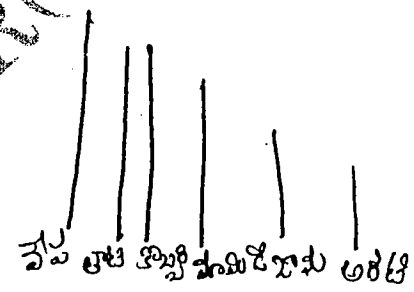 వేప తాటి కొబ్బరి మామిడి జామ అరటి